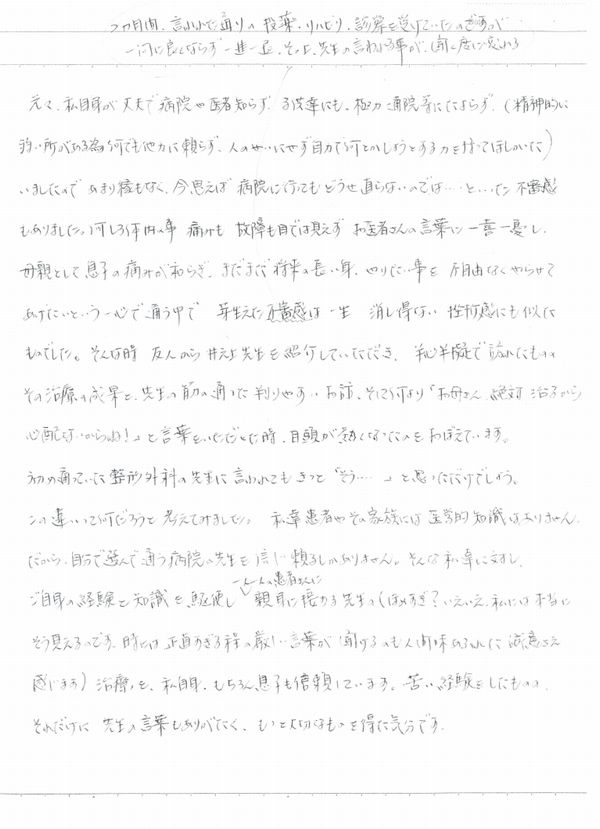 つカ月間、言われた通りの投薬、リハビリ、診察を受けていたのですが
一向に良くならず一進一退、その上、先生の言われる事が、聞く度に変わる
元々、私自身が丈夫で病院や医者知らず、子供達にも、極力通院等にたよらず、(精神的に
強い所がある為何でも他力に頼らず、人のせいにせず自力で何とかしようとする力を持ってほしいた)
いましたので あまり縁もなく、今思えば 病院に行ってもどうせ直らないのでは…といった不審感
もありました。何しろ体内の事 痛みも 故障も目では見えず お医者さんの言葉に一喜一憂し、
母親として息子の痛みが和らぎ、まだまだ将来の長い身、やりたい事を 不自由なくやらせて
あげたいという一心で通う中で 芽生えた不審感は一生 消し得ない 挫折感にも似た
ものでした。そんな時 友人から井上先生を紹介していただき、半心半疑で訪れたものの
その治療の成果と、先生の筋の通った判りやすいお話、そして何より「お母さん、絶対治るから
心配ないからね!」と言葉をいただいた時、目頭が熱くなったのをおぼえています。
初め通っていた整形外科の先生に言われても きっと「そう…」と思っただけでしょう。
この違いって何だろうと考えてみました。 私達患者やその家族には医学的知識はありません。
だから、自分で選んで通う病院の先生を信じ頼るしかありません。そんな私達に対し、
ご自身の経験と知識を駆使し 一人一人の患者さんに 親身に接する先生の(ほめすぎ?いえいえ、私には本当に
そう見えるのです、時には正直すぎる程の厳しい言葉が聞けるのも人間味あふれた 誠意さえ
感じます)治療を、私自身、もちろん息子も信頼しています。苦い経験をしたものの、
それだけに 先生の言葉もありがたく、もっと大切なものを得た気分です。